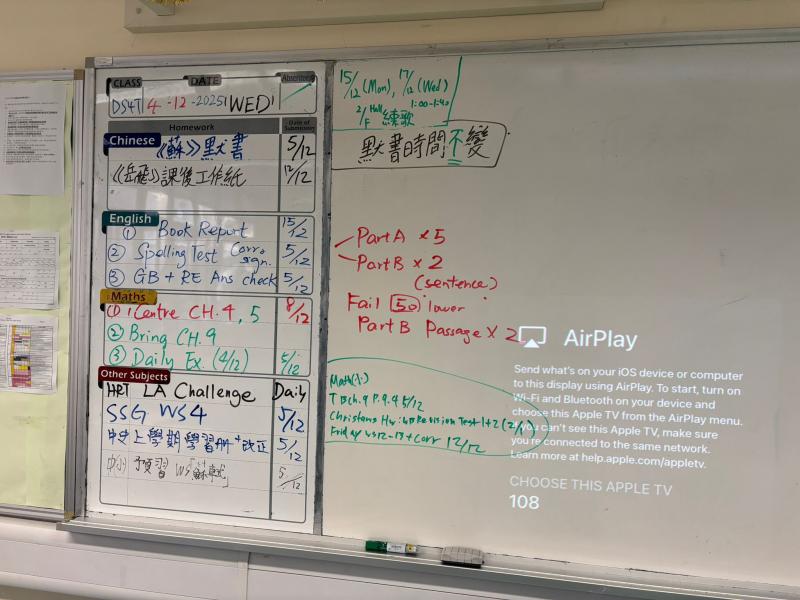 CLASS DATE Absentees
DS4T 4-12-2025 (WED)
Homework Date of Submission
Chinese
《蘇》默書 5/12
《岳飛》課後工作紙 12/12
English
① Book Report 15/12
② Spelling Test Corr. sign. 5/12
③ GB + RE Ans check 5/12
Maths
① iCentre CH.4, 5 8/12
② Bring CH.9
③ Daily Ex. (4/12) 5/12
Other Subjects
HRT LA Challenge Daily
SSG WS4 5/12
中史上學期學習冊+改正 5/12
預習 WS「蘇軾」 5/12
15/12 (Mon), 17/12 (Wed)
2/F Hall 1:00-1:40
練歌
默書時間不變
Part A × 5
Part B × 2
(sentence)
Fail 50 lower
Part B Passage × 2
Math
TB ch.9 P.9.4 5/12
Christmas Hw: WB Revision Test 1+2
Friday WS12-13 + Corr 12/12
AirPlay
Send what's on your iOS device or computer
to this display using AirPlay. To start, turn on
Wi-Fi and Bluetooth on your device and
choose this Apple TV from the AirPlay menu.
If you can't see this Apple TV, make sure
you're connected to the same network.
Learn more at help.apple.com/appletv.
CHOOSE THIS APPLE TV
108